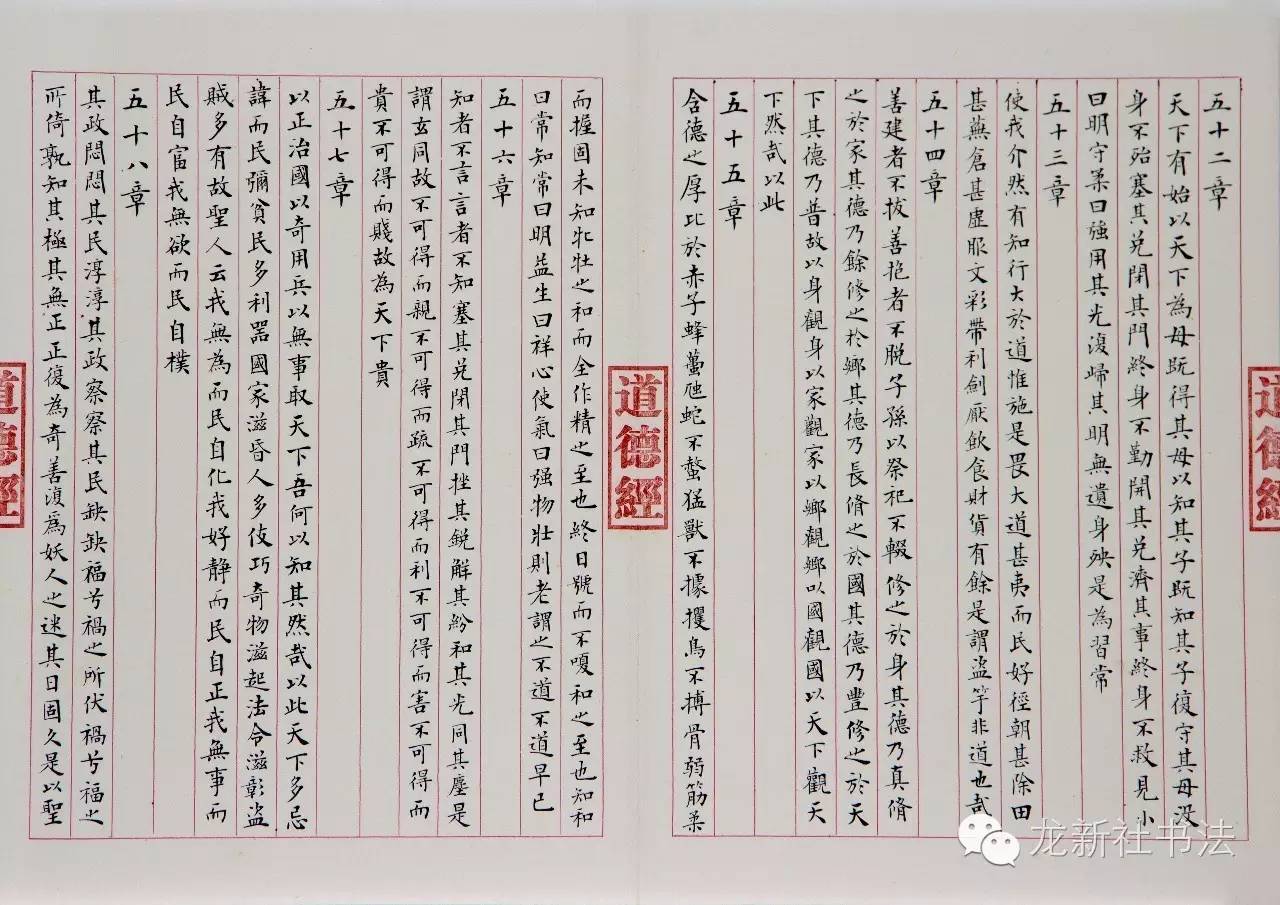 五十二章
天下有始以天下為母既得其母以知其子既知其子復守其母没
身不殆塞其兑閉其門終身不勤開其兑濟其事終身不救見小
曰明守柔曰強用其光復歸其明無遺身殃是為習常
五十三章
使我介然有知行大於道惟施是畏大道甚夷而民好徑朝甚除田
甚蕪倉甚虚服文彩帶利劍厭飲食財貨有餘是謂盜竽非道也哉
五十四章
善建者不拔善抱者不脱子孫以祭祀不輟修之於身其德乃真脩
之於家其德乃餘修之於鄉其德乃長脩之於國其德乃豐修之於天
下其德乃普故以身觀身以家觀家以鄉觀鄉以國觀國以天下觀天
下然哉以此
五十五章
含德之厚比於赤子蜂蠆虺蛇不螫猛獸不據攫鳥不搏骨弱筋柔
而握固未知牝牡之和而全作精之至也終日號而不嗄和之至也知和
曰常知常曰明益生曰祥心使氣曰强物壯則老謂之不道不道早已
五十六章
知者不言言者不知塞其兑閉其門挫其鋭解其紛和其光同其塵是
謂玄同故不可得而親不可得而疏不可得而利不可得而害不可得而
貴不可得而賤故為天下貴
五十七章
以正治國以奇用兵以無事取天下吾何以知其然哉以此天下多忌
諱而民彌貧民多利器國家滋昏人多伎巧奇物滋起法令滋彰盜
賊多有故聖人云我無為而民自化我好静而民自正我無事而
民自富我無欲而民自樸
五十八章
其政悶悶其民淳淳其政察察其民缺缺福兮禍之所伏禍兮福之
所倚孰知其極其無正正復為奇善復爲妖人之迷其日固久是以聖
道德經
道德經
道德經
龙新社书法